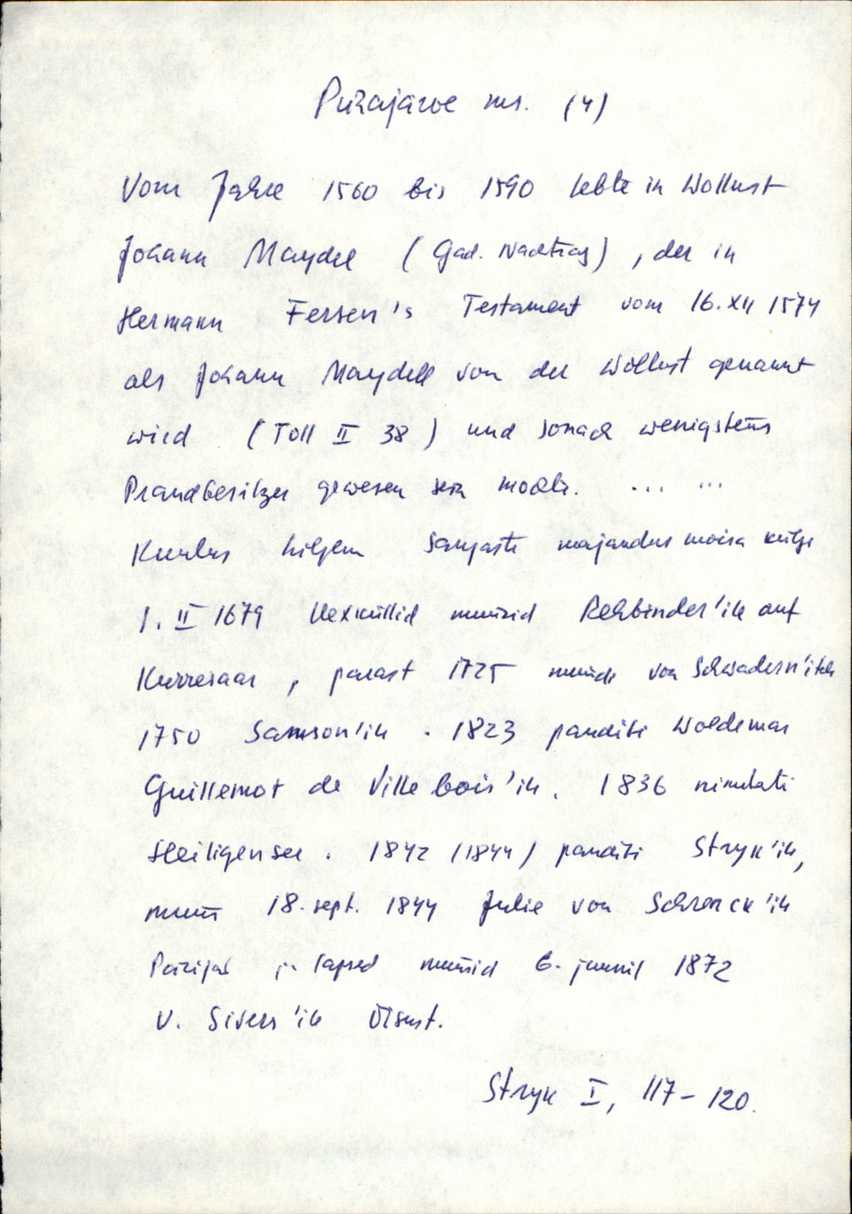 Pühajärve ms. (4)
Vom Jahre 1560 bis 1590 lebte in Wollust
Johann Maydel (Gad. Nachtrag), der in
Hermann Fersen's Testament vom 16. XII 1574
als Johann Maydell von der Wollust genannt
wird (Toll II 38) und sonach wenigstens
Pfandbesitzer gewesen sein mochte. ... ...
Kuulus hiljem Sangaste majandus mõisa külge
1. II 1679 Uexküllid müüsid Rehbinder'ile auf
Kurresaar, pärast 1725 müüdi von Schwadern'itele
1750 Samson'ile. 1823 panditi Woldemar
Guillemot de Villebois'ile. 1836 nimetati
Heiligensee. 1842 (1844) panditi Stryk'ile,
müüs 18. sept. 1844 Julie von Schrenck'ile
Pärijad ja lapsed müüsid 6. juunil 1872
v. Sivers'ile Õisust.
Stryk I, 117-120.